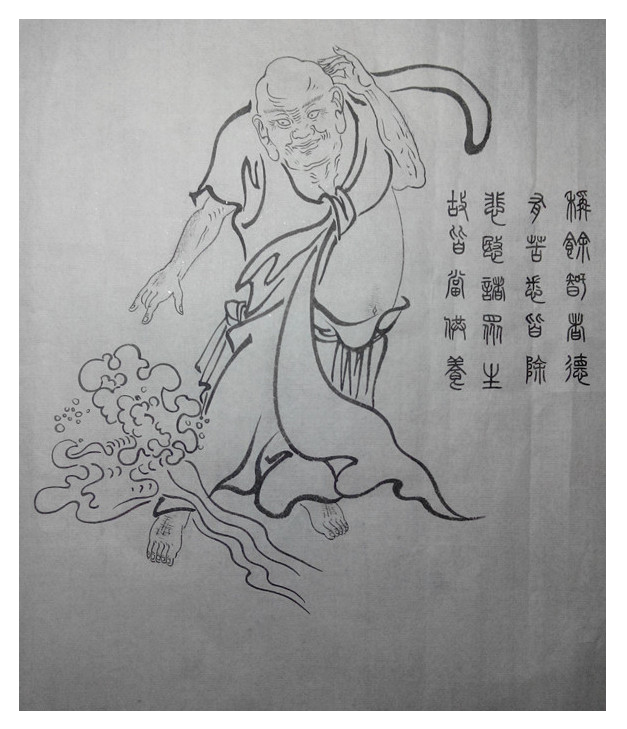 稱餘智者德
有苦悉皆除
悲愍諸眾生
故皆當供養